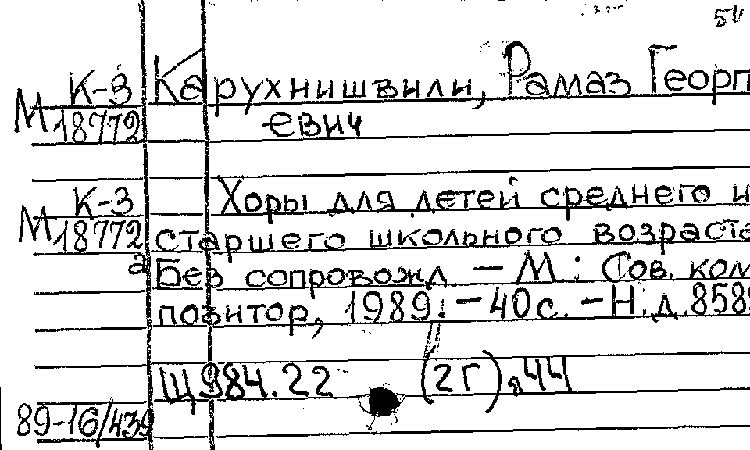 54
К-3 Карухнишвили, Рамаз Георг
М 18772 евич
К-3 Хоры для детей среднего и
М 18772 старшего школьного возраста
2 Без сопровожд. – М.: Сов. ком
позитор, 1989. – 40 с. – Н.д. 858
Щ984.22 (2Г)я44
89-16/439